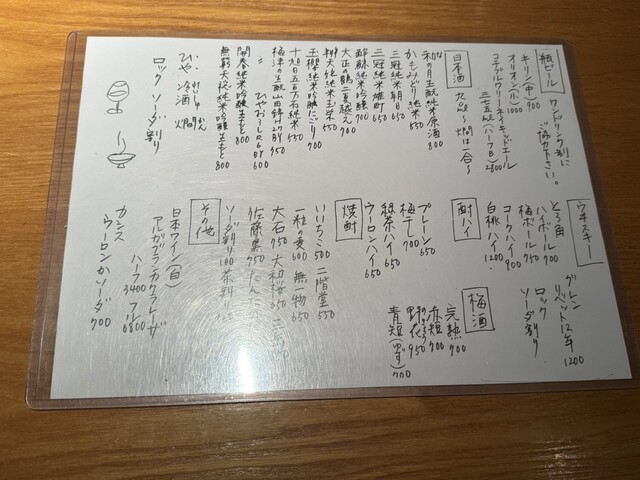 瓶ビール
ワンドリンク制に
ご協力下さい。
キリン(中) 900
オリオン(小) 1000
コエドブルワリー
三七五ml(ハーフB) 2800
日本酒
九勺〜 燗は一合〜
和の月生酛純米原酒 800
かもみどり純米 650
三冠純米朝日 650
三冠純米雄町 650
酔鯨純米吟醸 700
大正の鶴 700
玉櫻純米吟醸にごり 900
十旭日五百万石純米 550
梅津の生酛山田錦 850
ひやおろし 600
開春純米吟醸 800
無窮天穏純米吟醸 800
ひや 冷酒 燗
ロック ソーダ割り
ウヰスキー
とろ角
ハイボール 700
梅ボール 750
コークハイ 900
白桃ハイ 1200
グレン
リベット12年
1200
ロック
ソーダ割り
酎ハイ
プレーン 650
梅干し 700
緑茶ハイ 650
ウーロンハイ 650
梅酒
完熟 700
赤短 700
野花 950
青短(ゆず) 700
焼酎
いいちこ 500 二階堂 550
一粒の麦 600 無一物 650
大石 750 大和桜 650
佐藤黒 750
ソーダ割り 100 茶料
その他
日本ワイン(白)
アルガブランカ クラレーザ
ハーフ 3400 フル 6800
カシス
ウーロンかソーダ 700